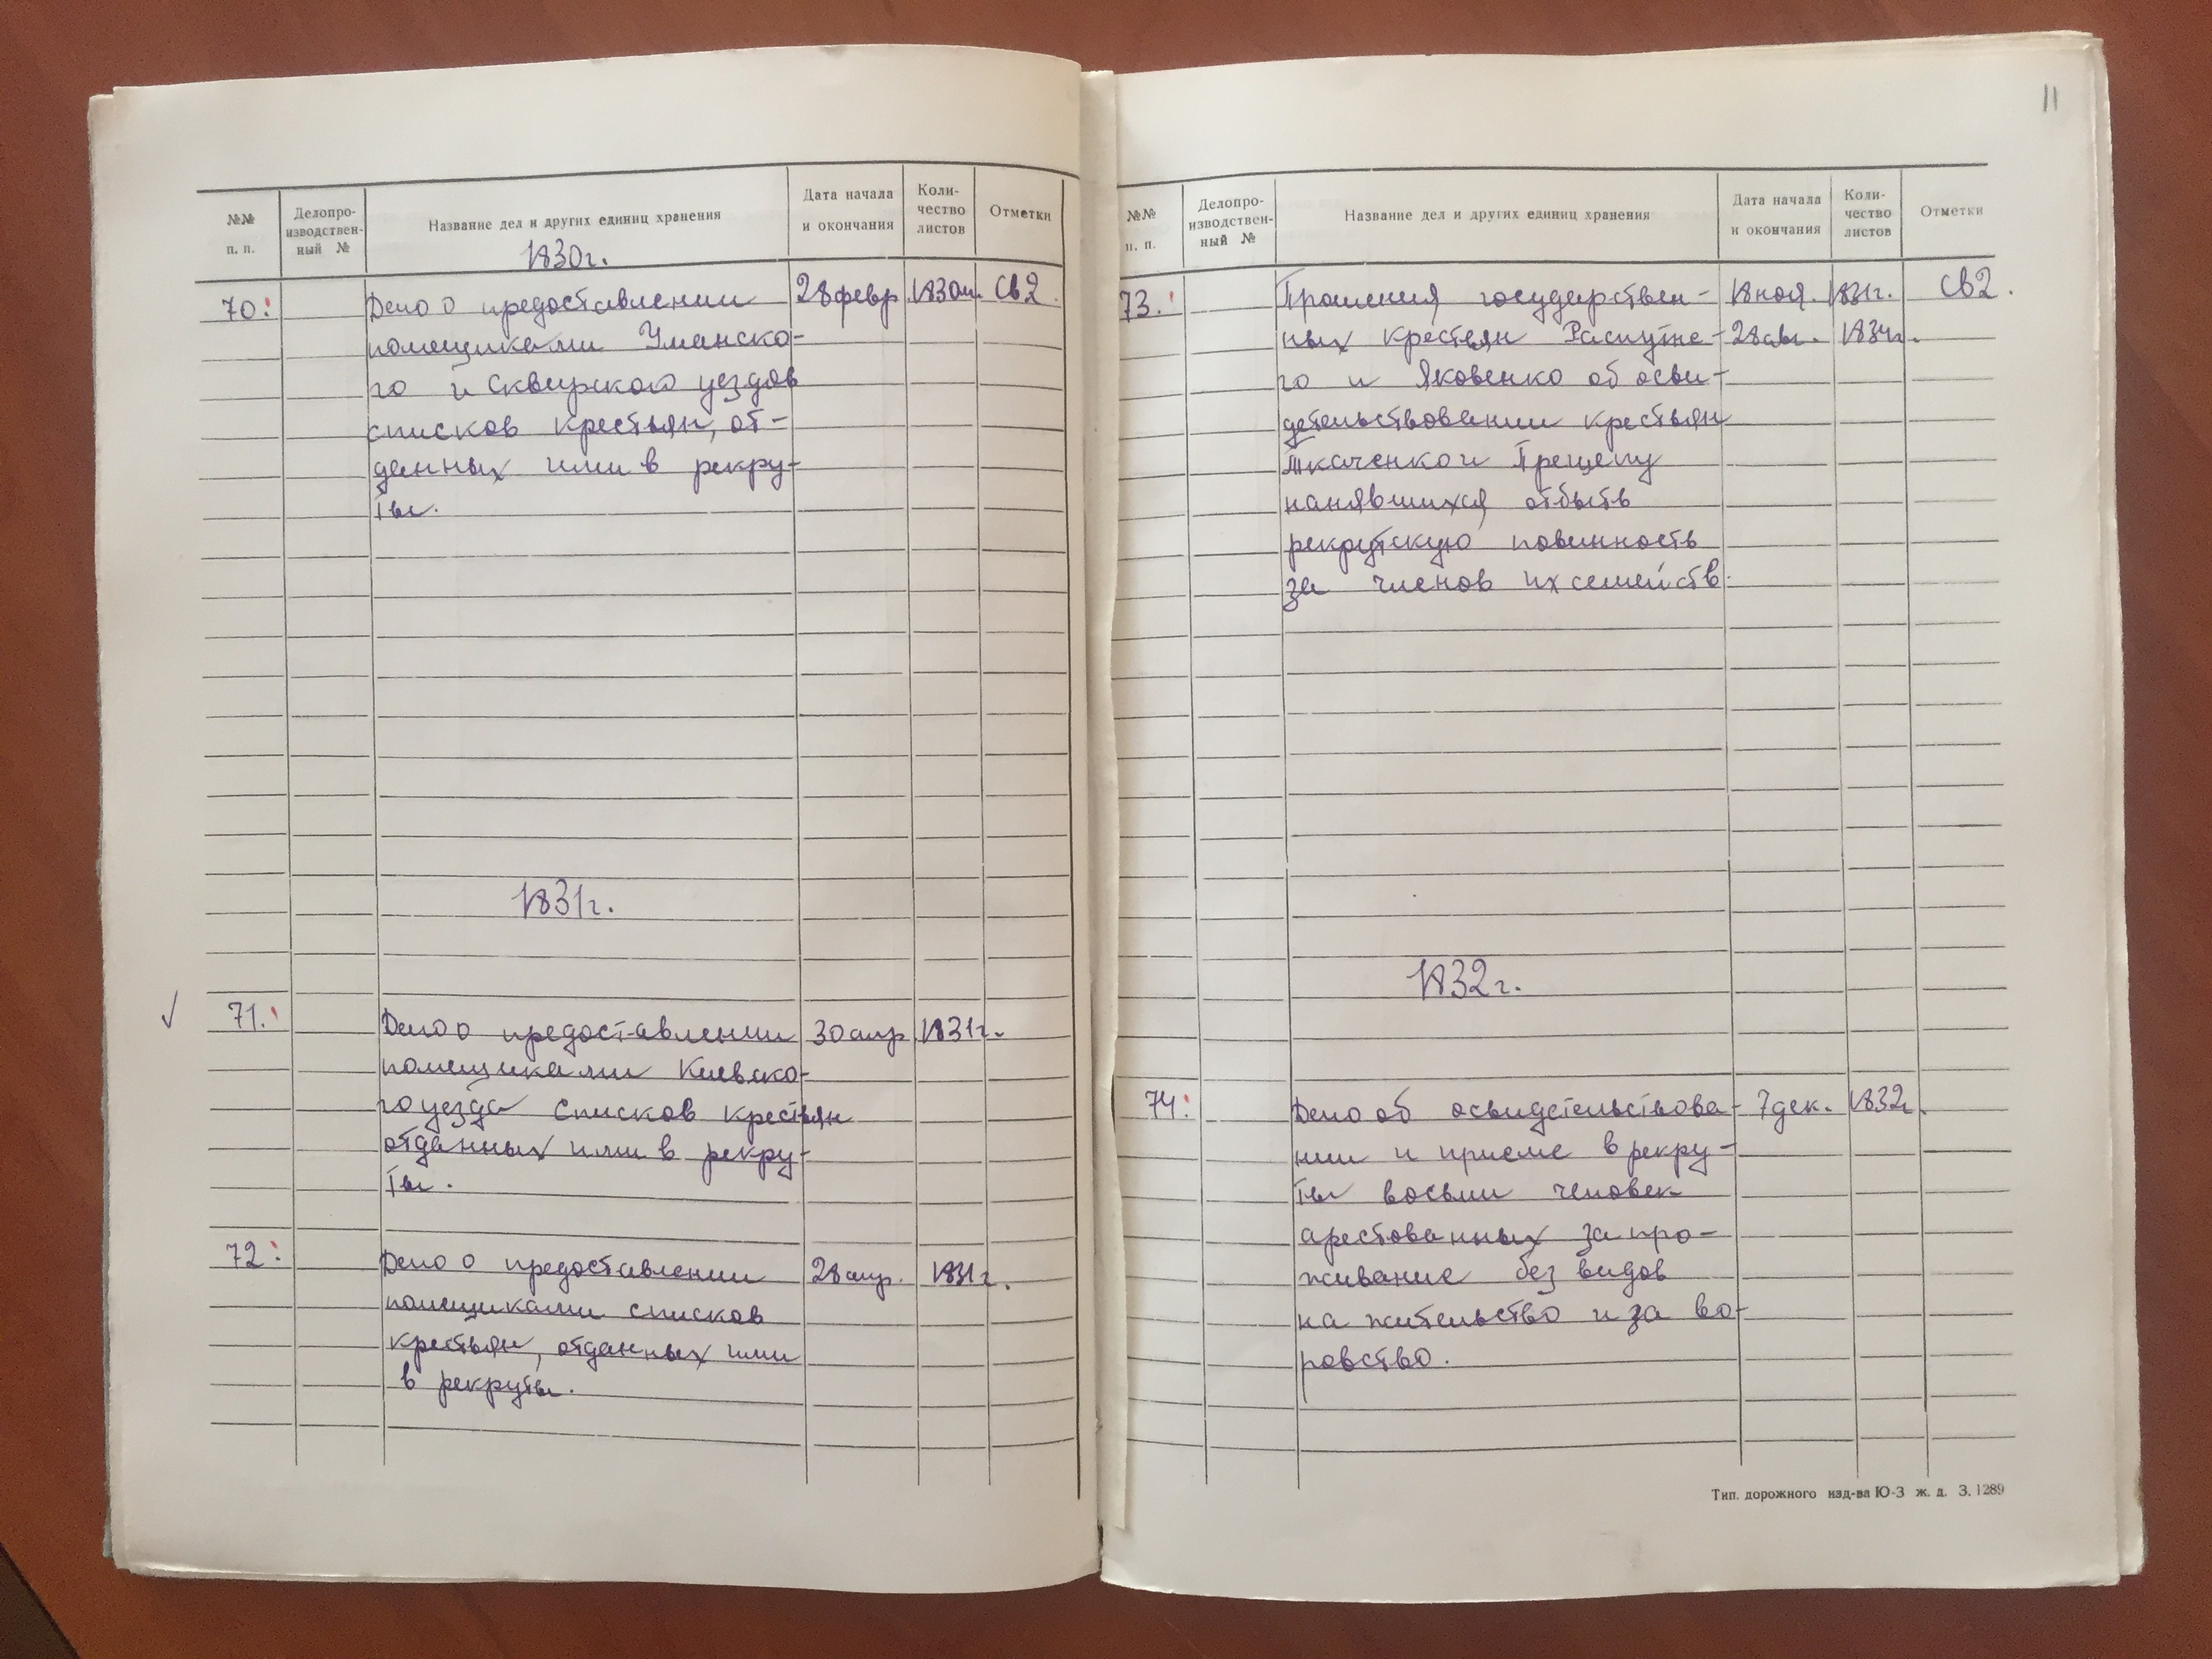 №№ п. п. Делопро-изводствен-ный № Название дел и других единиц хранения Дата начала и окончания Коли-чество листов Отметки
1830г.
70. Дело о предоставлении 28 февр. 1830г. св2.
помещиками Уманско-
го и Сквирского уездов
списков крестьян, от-
данных ими в рекру-
ты.
1831г.
✓ 71. Дело о предоставлении 30 апр. 1831г.
помещиками Киевско-
го уезда списков крестьян
отданных ими в рекру-
ты.
72. Дело о предоставлении 28 апр. 1831г.
помещиками списков
крестьян, отданных ими
в рекруты.
11
№№ п. п. Делопро-изводствен-ный № Название дел и других единиц хранения Дата начала и окончания Коли-чество листов Отметки
73. Прошения государствен- 18 ноя. 1831г. св2.
ных крестьян Распутне- 28 авг. 1834г.
го и Яковенко об осви-
детельствовании крестьян
Ткаченко и Трещепу
нанявшихся отбыть
рекрутскую повинность
за членов их семейств.
1832г.
74. Дело об освидетельствова- 7 дек. 1832г.
нии и приеме в рекру-
ты восьми человек
арестованных за про-
живание без видов
на жительство и за во-
ровство.
Тип. дорожного изд-ва Ю-З ж. д. З. 1289